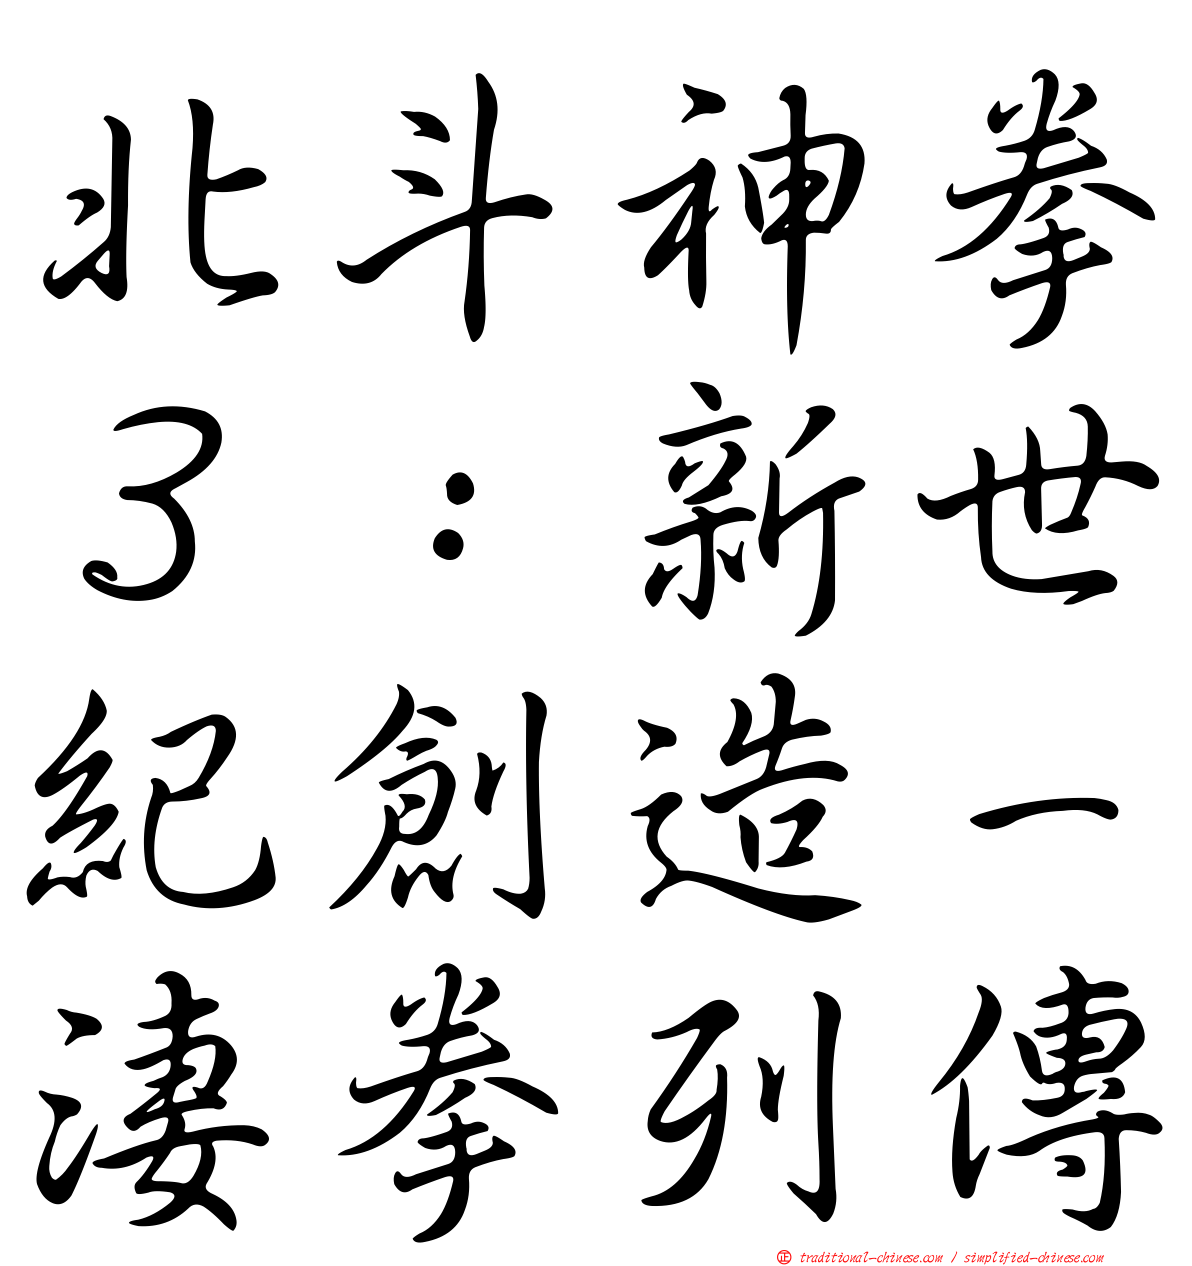 北斗神拳
3：新世
紀創造－
淒拳列傳
㊣ traditional-chinese.com / simplified-chinese.com